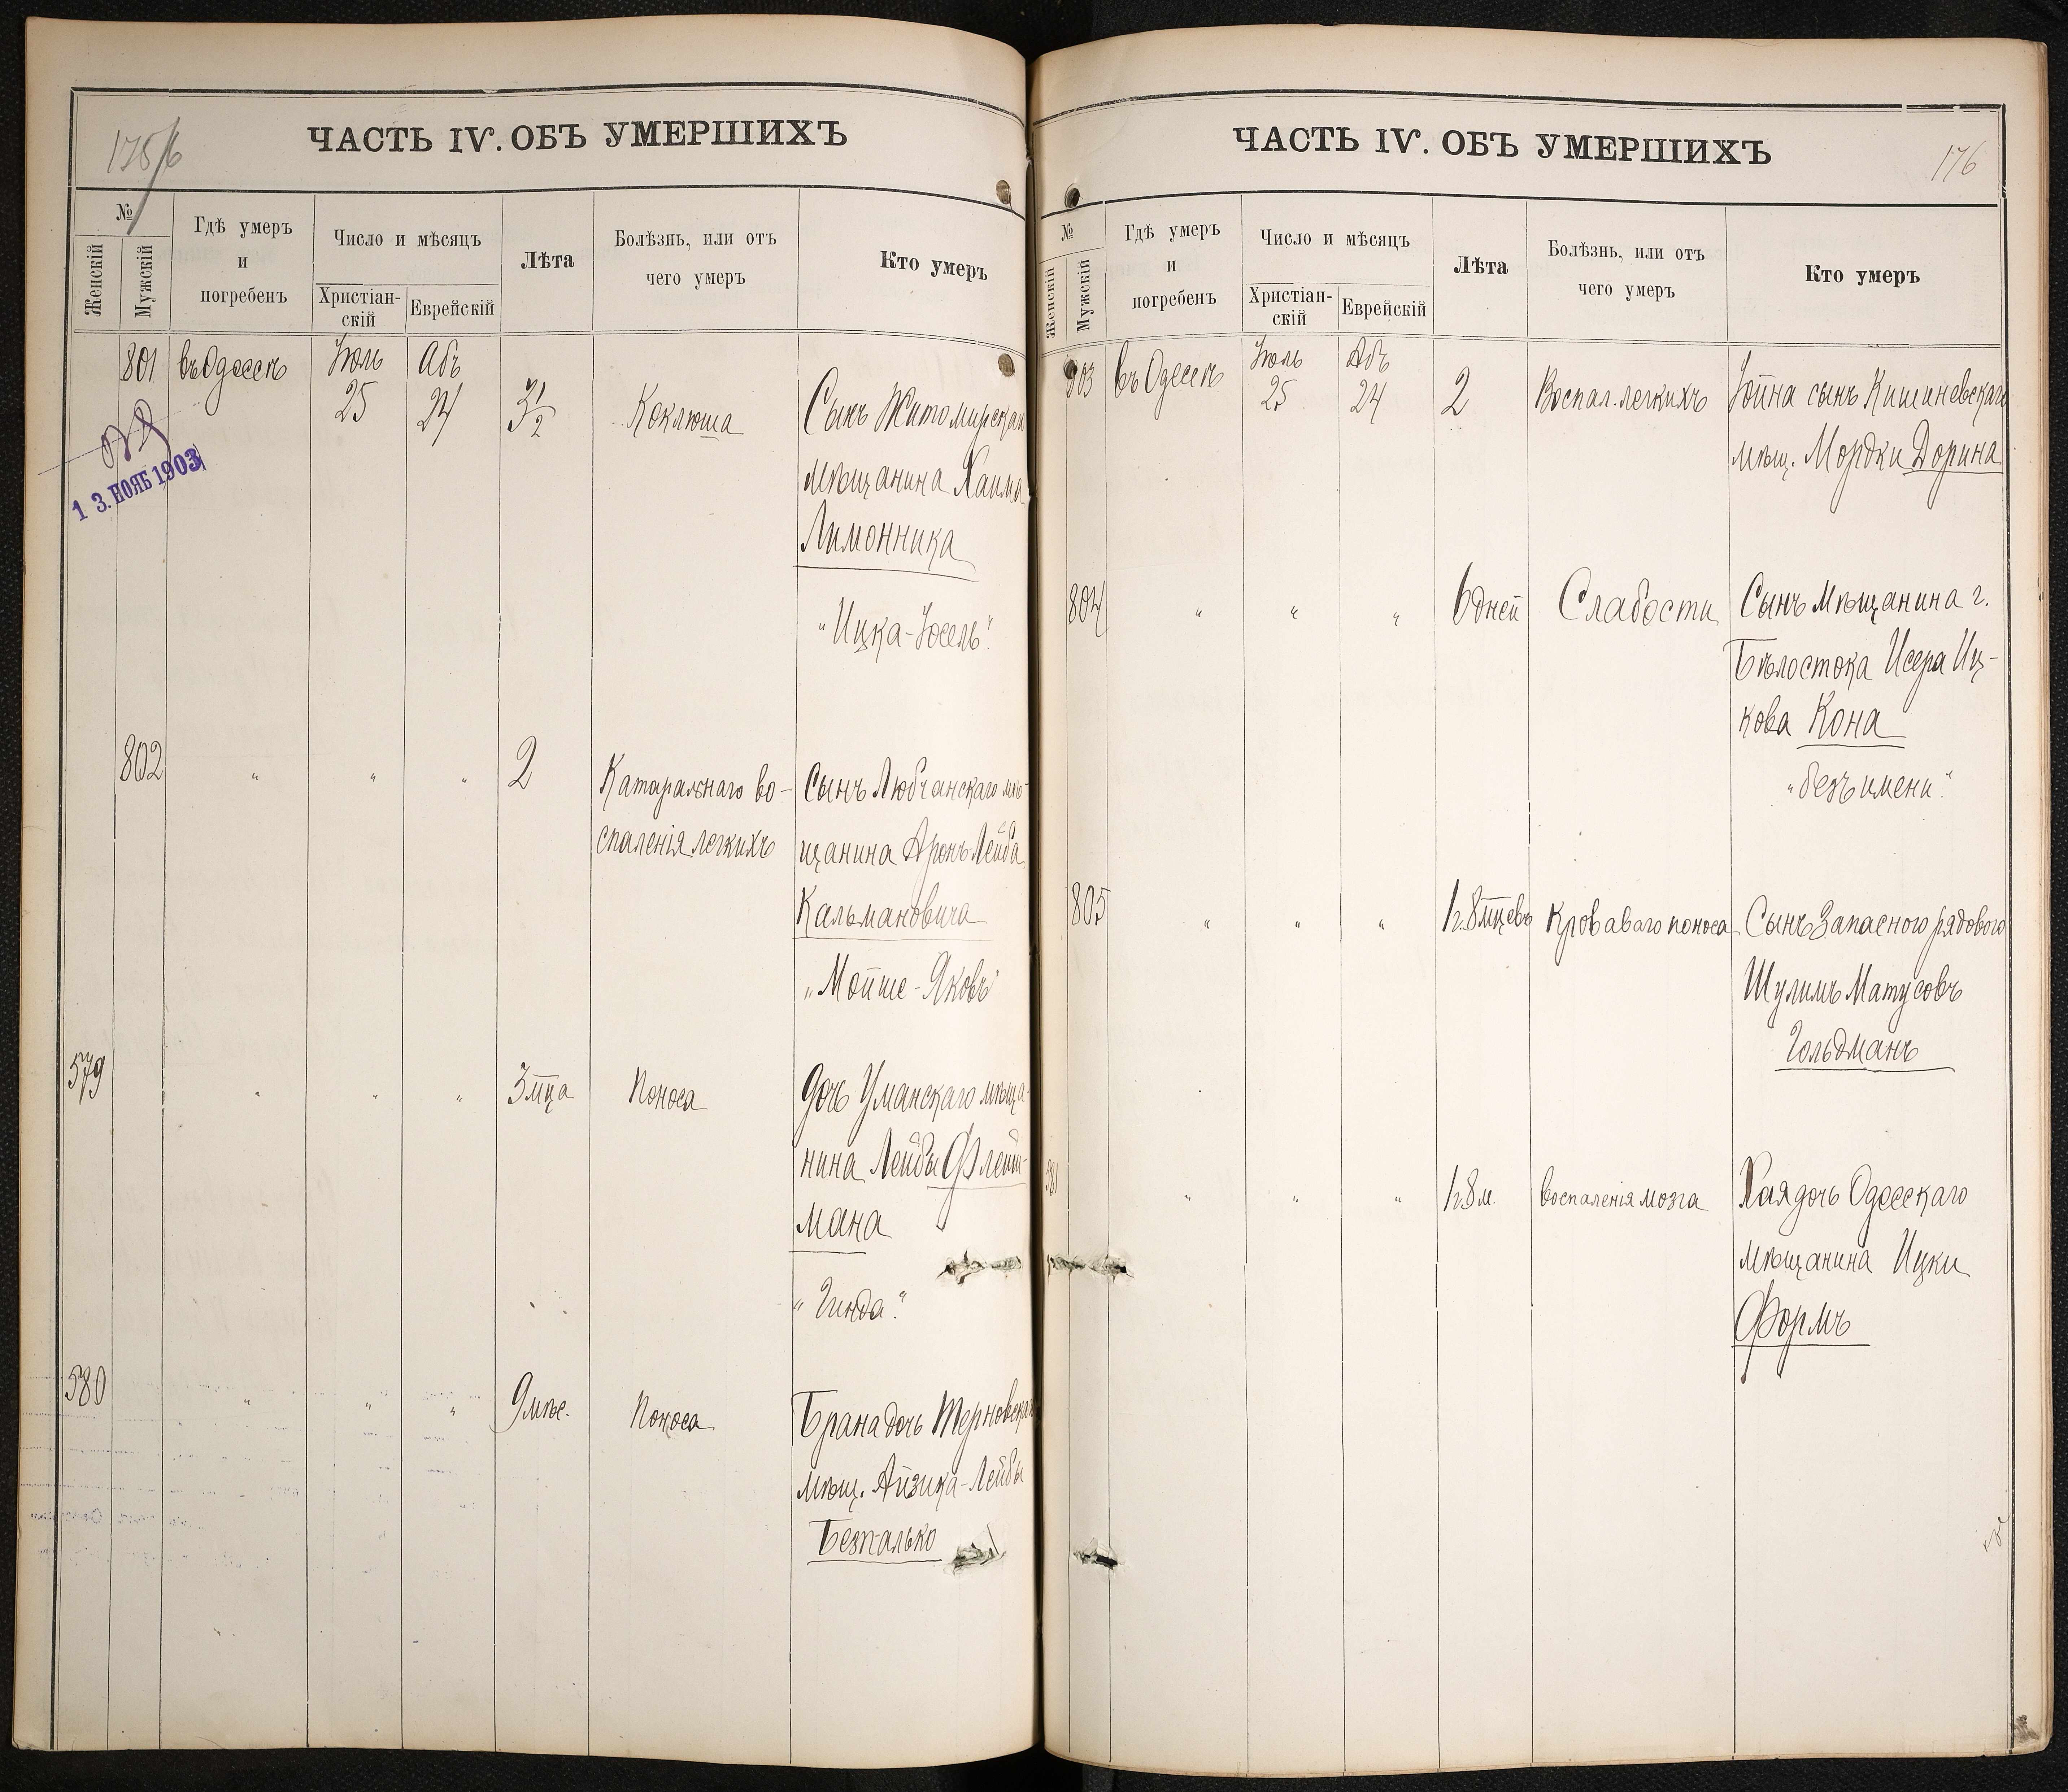 175/6
ЧАСТЬ IV. ОБЪ УМЕРШИХЪ
№
Женскій
Мужскій
Гдѣ умеръ
и
погребенъ
Число и мѣсяцъ
Христіан-
скій
Еврейскій
Лѣта
Болѣзнь, или отъ
чего умеръ
Кто умеръ
801 въ Одессѣ Іюль 25 Абъ 24 3 1/2 Коклюша Сынъ Житомирскаго
мѣщанина Хаима
Лимонника
"Ицка-Іосель".
13. НОЯБ 1903
802 " " " 2 Катаральнаго во- Сынъ Любчанскаго мѣ-
спаленія легкихъ щанина Аронъ-Лейба
Кальмановича
"Мойше-Яковъ"
579 " " " 3 мца Поноса Дочь Уманскаго мѣща-
нина Лейбы Флейш-
мана
"Гинда".
580 " " " 9 мѣс. Поноса Брана дочь Терновскаго
мѣщ. Айзика-Лейбы
Безпалько
ЧАСТЬ IV. ОБЪ УМЕРШИХЪ
176
№
Женскій
Мужскій
Гдѣ умеръ
и
погребенъ
Число и мѣсяцъ
Христіан-
скій
Еврейскій
Лѣта
Болѣзнь, или отъ
чего умеръ
Кто умеръ
803 въ Одессѣ Іюль 25 Абъ 24 2 Воспал. легкихъ Іойна сынъ Кишиневскаго
мѣщ. Мордки Дорина
804 " " " 6 дней Слабости Сынъ мѣщанина г.
Бѣлостока Исера Иц-
кова Кона
"безъ имени".
805 " " " 1 г. 8 мцевъ Кроваваго поноса Сынъ Запасного рядового
Шулимъ Матусовъ
Гольдманъ
581 " " " 1 г. 8 м. Воспаленія мозга Хая дочь Одесскаго
мѣщанина Ицки
Формъ